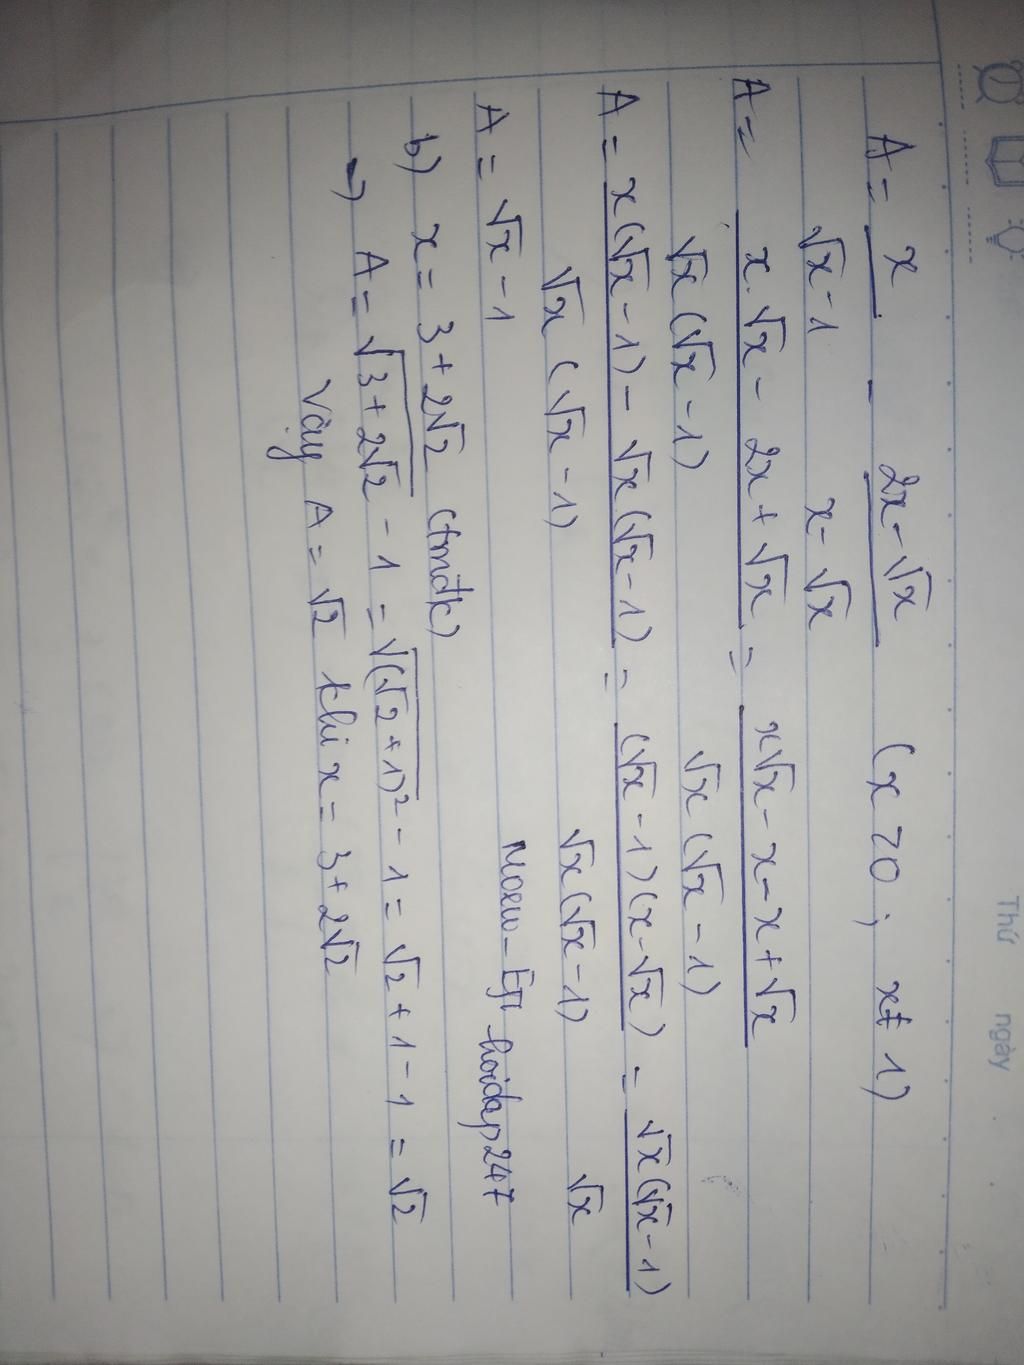 Thứ ngày
A = x/(√x - 1) - (2x - √x)/(x - √x) (x > 0; x ≠ 1)
A = (x.√x - 2x + √x)/(√x(√x - 1)) = (x√x - x - x + √x)/(√x(√x - 1))
A = (x(√x - 1) - √x(√x - 1))/(√x(√x - 1)) = ((√x - 1)(x - √x))/(√x(√x - 1)) = (√x(√x - 1))/√x
A = √x - 1
hoidap247
b) x = 3 + 2√2 (tmđk)
→) A = √(3 + 2√2) - 1 = √((√2 + 1)²) - 1 = √2 + 1 - 1 = √2
Vậy A = √2 khi x = 3 + 2√2